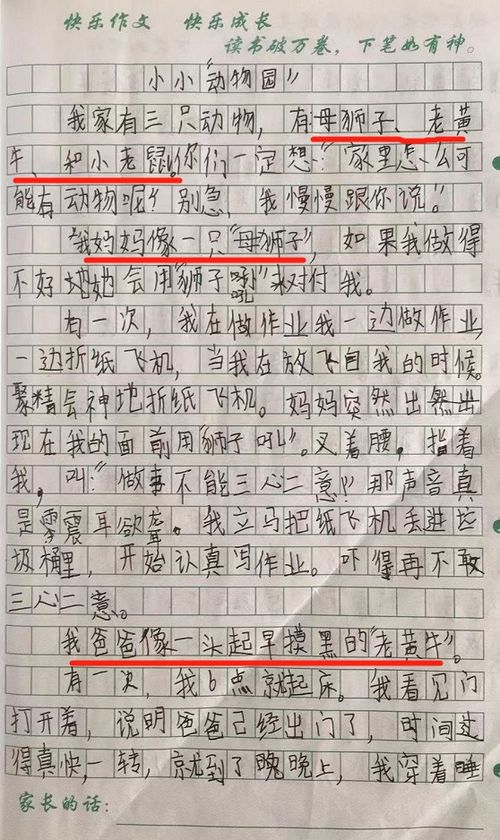 快乐作文 快乐成长
读书破万卷，下笔如有神。
小小“动物园”
我家有三只动物，有母狮子、老黄
牛、和小老鼠。你们一定想：“家里怎么可
能有动物呢？别急，我慢慢跟你说。”
我妈妈像一只“母狮子”，如果我做得
不好地她会用“狮子吼”来对付我。
有一次，我在做作业我一边做作业，
一边折纸飞机，当我在放飞自我的时候。
聚精会神地折纸飞机。妈妈突然出然出
现在我的面前用“狮子吼”。叉着腰，指着
我，叫：“做事不能三心二意！”那声音真
是震耳欲聋。我立马把纸飞机丢进垃
圾桶里，开始认真写作业。吓得再不敢
三心二意。
我爸爸像一头起早摸黑的“老黄牛”。
有一次，我6点就起床。我看见门
打开着，说明爸爸已经出门了，时间过
得真快，一转，就到了晚晚上，我穿着睡
家长的话：